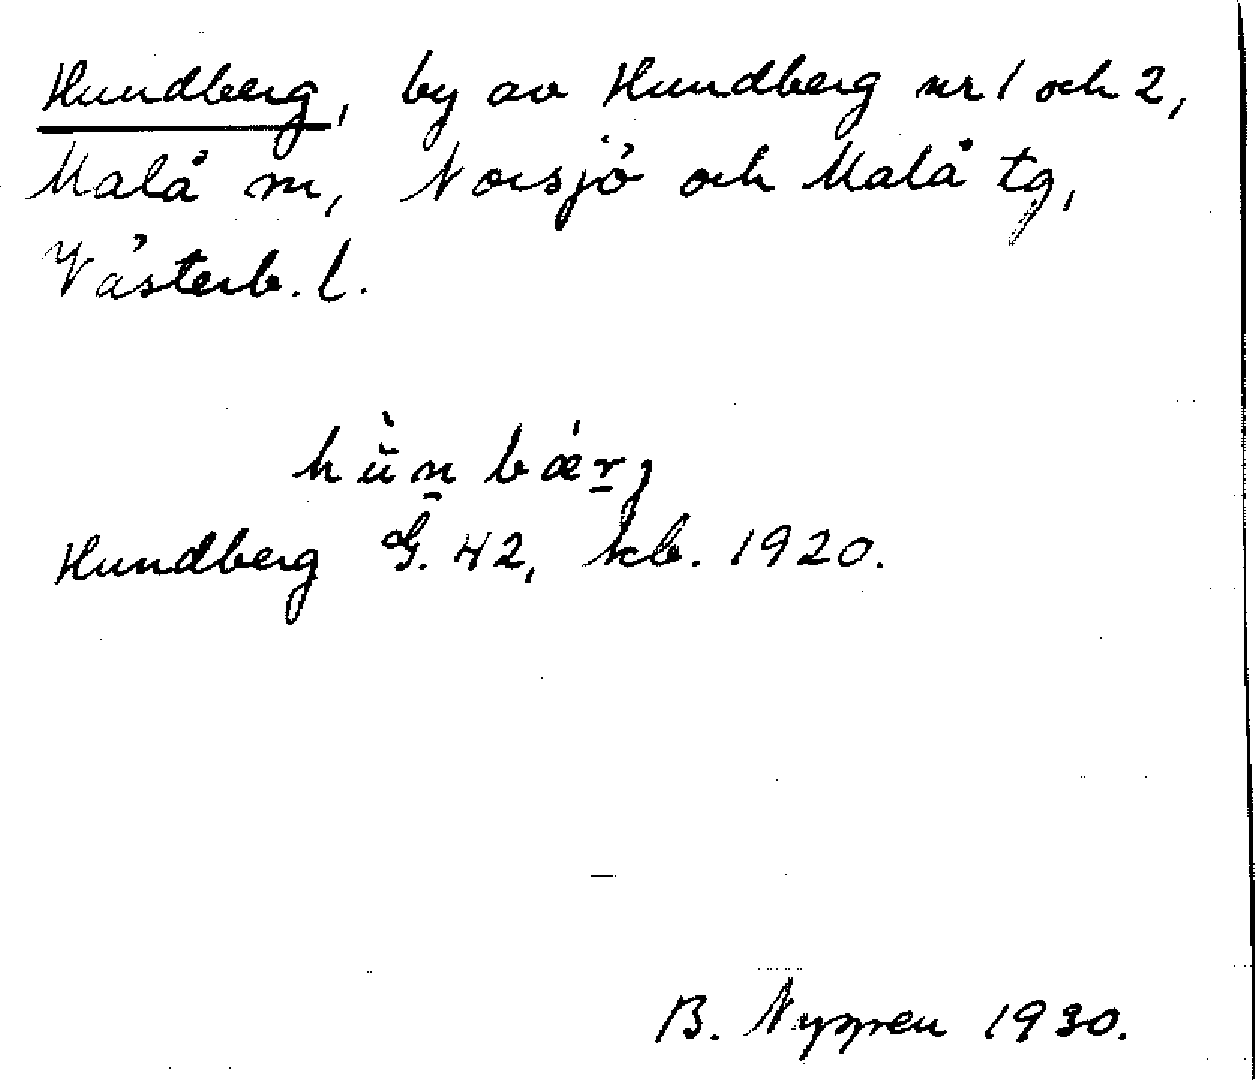 Hundberg, by av Hundberg nr 1 och 2,
Malå sn, Norsjö och Malå tg,
Västerb. l.
hùn bǽrj
Hundberg G. 42, kb. 1920.
B. 1930.